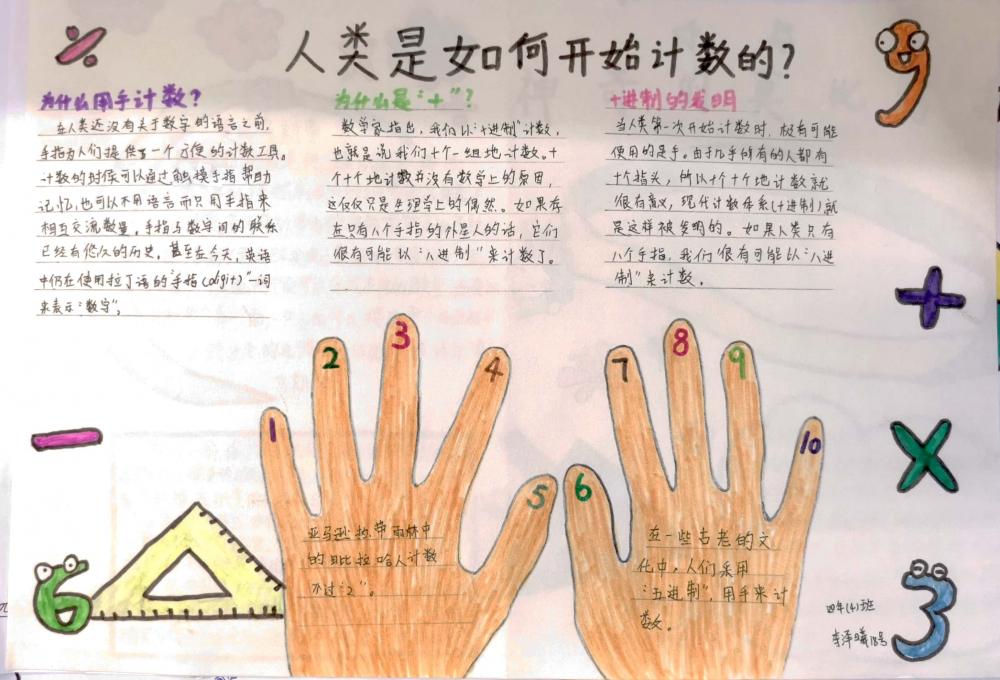 人类是如何开始计数的?
为什么用手计数?
在人类还没有关于数字的语言之前,
手指为人们提供了一个方便的计数工具。
计数的时候可以通过触摸手指帮助
记忆,也可以不用语言而只用手指来
相互交流数量。手指与数字间的联系
已经有悠久的历史。甚至在今天,英语
中仍在使用拉丁语的“手指(digit)”一词
来表示“数字”。
为什么是“十”?
数学家指出,我们以“十进制”计数,
也就是说我们十个一组地计数。十
个十个地计数并没有数学上的原因,
这仅仅只是生理学上的偶然。如果存
在只有八个手指的外星人的话,它们
很有可能以“八进制”来计数了。
十进制的发明
当人类第一次开始计数时,极有可能
使用的是手。由于几乎所有的人都有
十个指头,所以十个十个地计数就
很有意义,现代计数体系(十进制)就
是这样被发明的。如果人类只有
八个手指,我们很有可能以“八进
制”来计数。
1
2
3
4
5
6
7
8
9
10
亚马逊热带雨林中
的毗拉哈人计数
不过“2”。
在一些古老的文
化中,人们采用
“五进制”,用手来计
数。
÷
9
+
-
×
6
3
四年(4)班
李泽曦18号